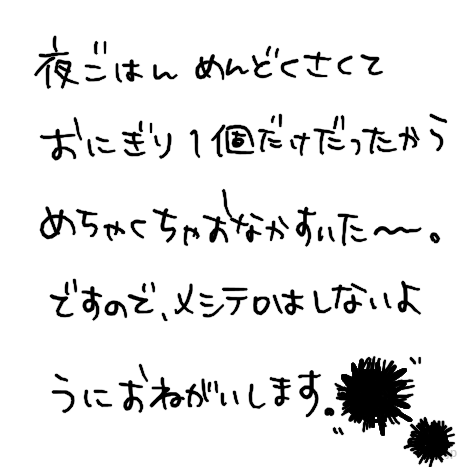 夜ごはん めんどくさくて
おにぎり1個だけだったから
めちゃくちゃおなかすいた〜。
ですので、メシテロはしないよ
うにおねがいします。